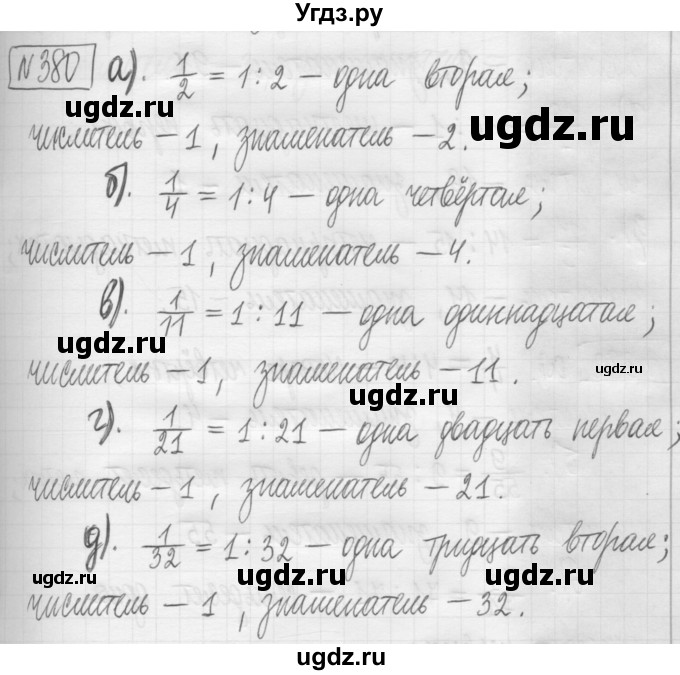 Угдз.ру
№380 а). 1/2 = 1 : 2 – одна вторая;
ugdz.ru ugdz.ru
числитель – 1, знаменатель – 2.
б). 1/4 = 1 : 4 – одна четвёртая;
ugdz.ru
числитель – 1, знаменатель – 4.
в). 1/11 = 1 : 11 – одна одиннадцатая;
ugdz.ru
ugdz.ru
числитель – 1, знаменатель – 11.
ugdz.ru
г). 1/21 = 1 : 21 – одна двадцать первая;
числитель – 1, знаменатель – 21.
д). 1/32 = 1 : 32 – одна тридцать вторая;
ugdz.ru ugdz.ru ugdz.ru
числитель – 1, знаменатель – 32.
ugdz.ru